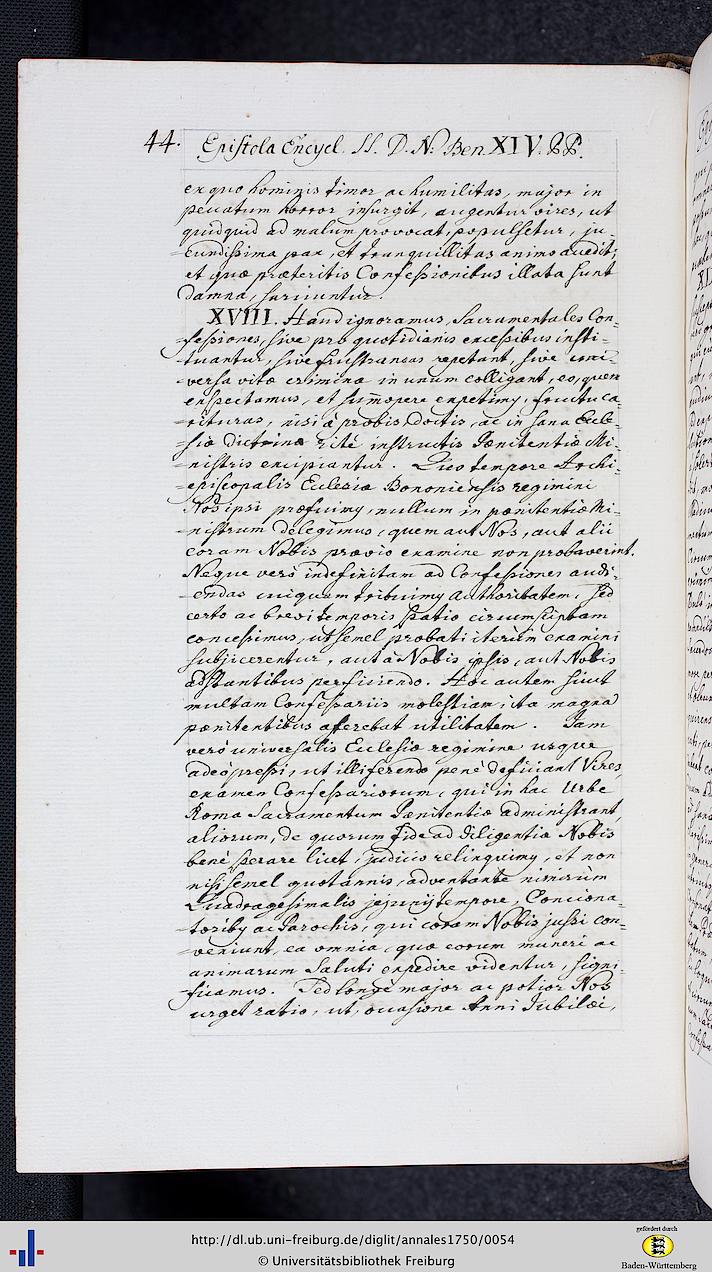 44. Epistola Encycl. SS. D. N. Ben. XIV. PP.
ex quo hominis timor ac humilitas, major in
peccatum horror insurgit, augentur vires, ut
quidquid ad malum provocat, populsetur, ju-
-cundissima pax, et tranquillitas animo accedit;
et quæ præteritis Confessionibus illata sunt
damna, sarciuntur.
XVIII. Haud ignoramus, Sacramentales Con-
-fessiones, sive pro quotidianis excessibus insti-
-tuantur, sive frustraneas repetant, sive uni-
-versa vitæ crimina in unum colligant, eo, quem
exspectamus, et sum̄opere expetimꝰ, fructu ca-
-rituras, nisi à probis, doctis, ac in sana Eccle-
-siæ doctrina ritè instructis Pœnitentiæ Mi-
-nistris excipiantur. Quo tempore Archi-
-episcopalis Ecclesiæ Bononiensis regimini
Nos ipsi præfuimꝰ, nullum in pœnitentiæ Mi-
-nistrum delegimus, quem aut Nos, aut alii
coram Nobis prævio examine non probaverint.
Neque verò indefinitam ad Confessiones audi-
-endas cuiquam tribuimꝰ Authoritatem, sed
certo ac brevi temporis spatio circumscriptam
concessimus, ut semel probati iterùm examini
subjicerentur, aut à Nobis ipsis, aut Nobis
adstantibus perficiendo. Hoc autem sicut
multam Confessariis molestiam, ita magnā
pœnitentibus afferebat utilitatem. Jam
verò universalis Ecclesiæ regimine usque
adeò pressi, ut illi ferendo penè deficiant Vires,
examen Confessariorum, qui in hac Urbe
Roma Sacramentum Pœnitentiæ administrant,
aliorum, de quorum fide ad diligentia Nobis
benè sperare licet, judicio relinquimꝰ, et non
nisi semel quotannis, adventante nimirùm
Quadragesimalis jejunij tempore, Conciona-
-toribꝰ ac Parochis, qui coram Nobis jussi con-
-veniunt, ea omnia, quæ eorum muneri ac
animarum Saluti expedire videntur, signi-
-ficamus. Sed longè major ac potior Nos
urget ratio, ut, occasione Anni Jubilæi,
http://dl.ub.uni-freiburg.de/diglit/annales1750/0054
© Universitätsbibliothek Freiburg
gefördert durch
Baden-Württemberg